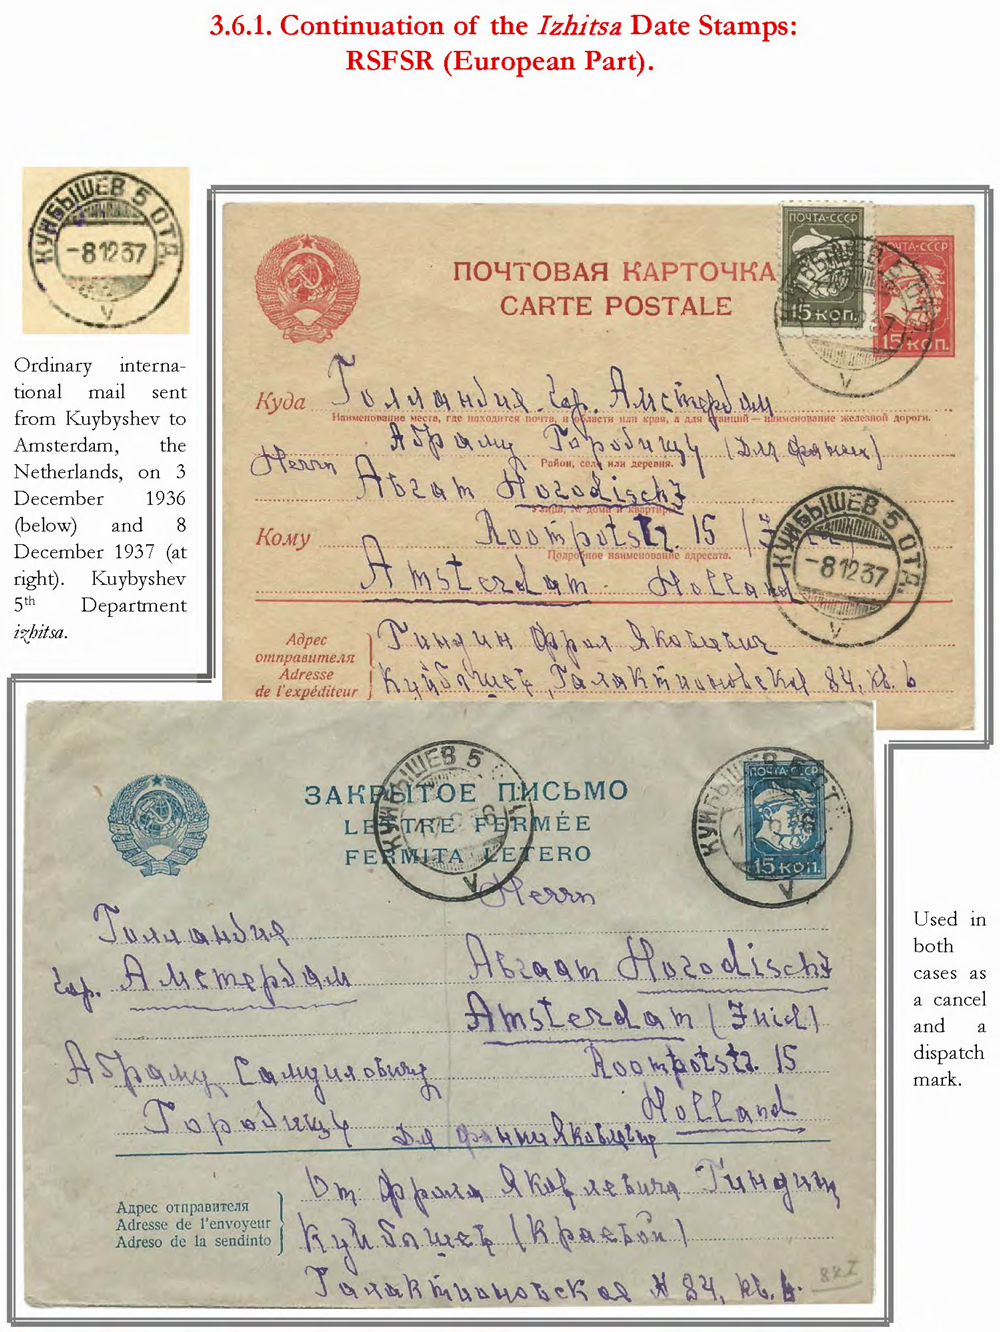 3.6.1. Continuation of the Izhitsa Date Stamps:
RSFSR (European Part).
КУЙБЫШЕВ 5 ОТД.
-8 12 37
V
Ordinary interna-
tional mail sent
from Kuybyshev to
Amsterdam, the
Netherlands, on 3
December 1936
(below) and 8
December 1937 (at
right). Kuybyshev
5th Department
izhitsa.
ПОЧТОВАЯ КАРТОЧКА
CARTE POSTALE
ПОЧТА-СССР
15 КОП.
ПОЧТА-СССР
15 КОП.
V
Куда Голландия. гор. Амстердам
Наименование места, где находится почта, и области или края, а для станций — наименование железной дороги.
Абраму Городищу (для фани)
Район, село или деревня.
Herrn
Abram Horodisch
Улица, № дома и квартиры
Кому Roompotstr. 15
Подробное наименование адресата.
Amsterdam Holland
КУЙБЫШЕВ 5 ОТД.
-8 12 37
V
Адрес
отправителя
Adresse
de l'expéditeur
Гиндин Яковлевич
Куйбышев, Галактионовская 84, кв. 6
ЗАКРЫТОЕ ПИСЬМО
LETTRE FERMÉE
FERMITA LETERO
КУЙБЫШЕВ 5
V
КУЙБЫШЕВ 5 ОТД
V
ПОЧТА-СССР
15 КОП.
Herrn
Голландия
гор. Амстердам
Abraam Horodisch
Amsterdam (Zuid)
Абраму Самуиловичу
Roompotstr. 15
Городищу
Holland
Для Яковлевны
Адрес отправителя
Adresse de l'envoyeur
Adreso de la sendinto
От Яковлевича Гиндин
Куйбышев (Краевой)
Галактионовская № 84, кв. 6
Used in
both
cases as
a cancel
and a
dispatch
mark.